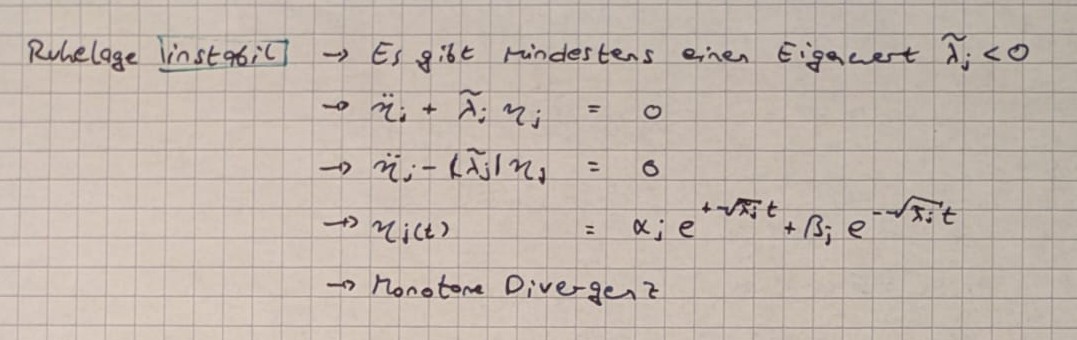 Ruhelage instabil → Es gibt mindestens einen Eigenwert λ̃ⱼ < 0
→ η̈ⱼ + λ̃ⱼ ηⱼ = 0
→ η̈ⱼ - |λ̃ⱼ| ηⱼ = 0
→ ηⱼ(t) = αⱼ e^{+√λ̃ⱼ t} + βⱼ e^{-√λ̃ⱼ t}
→ Monotone Divergenz